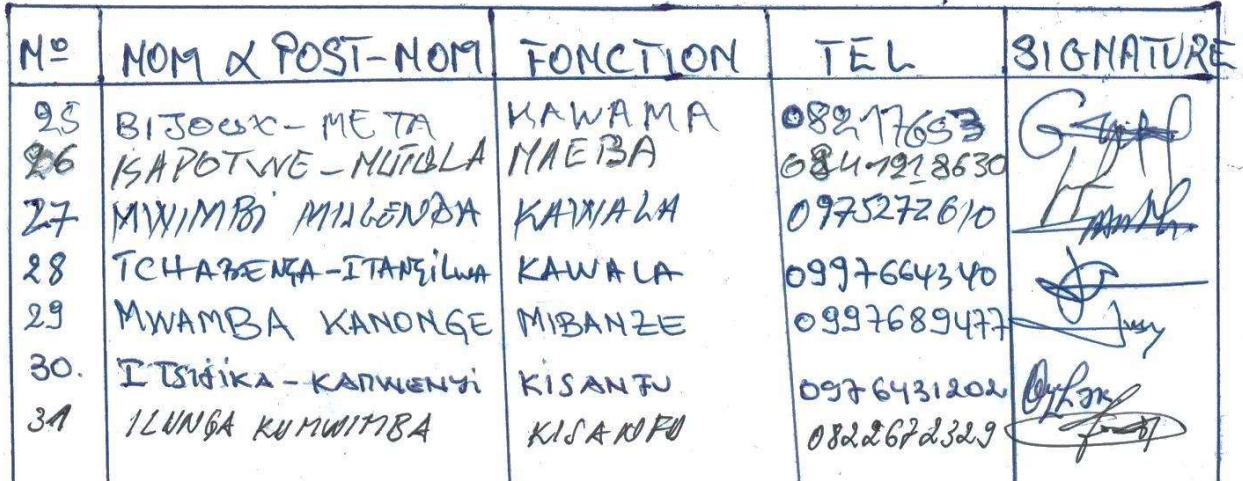 Nº NOM & POST-NOM FONCTION TEL SIGNATURE
25 BIJOUX-META KAWAMA 08217653
26 KAPOTWE-MUTULA MAEBA 0841218630
27 MWIMBI MILGENDA KAWALA 0975272610
28 TCHABENGA-ITANGILWA KAWALA 0997664340
29 MWAMBA KANONGE MIBANZE 0997689477
30. ITSHIKA-KAPWENYI KISANFU 0976431202
31 ILUNGA KUMWIMBA KISANFU 0822672329